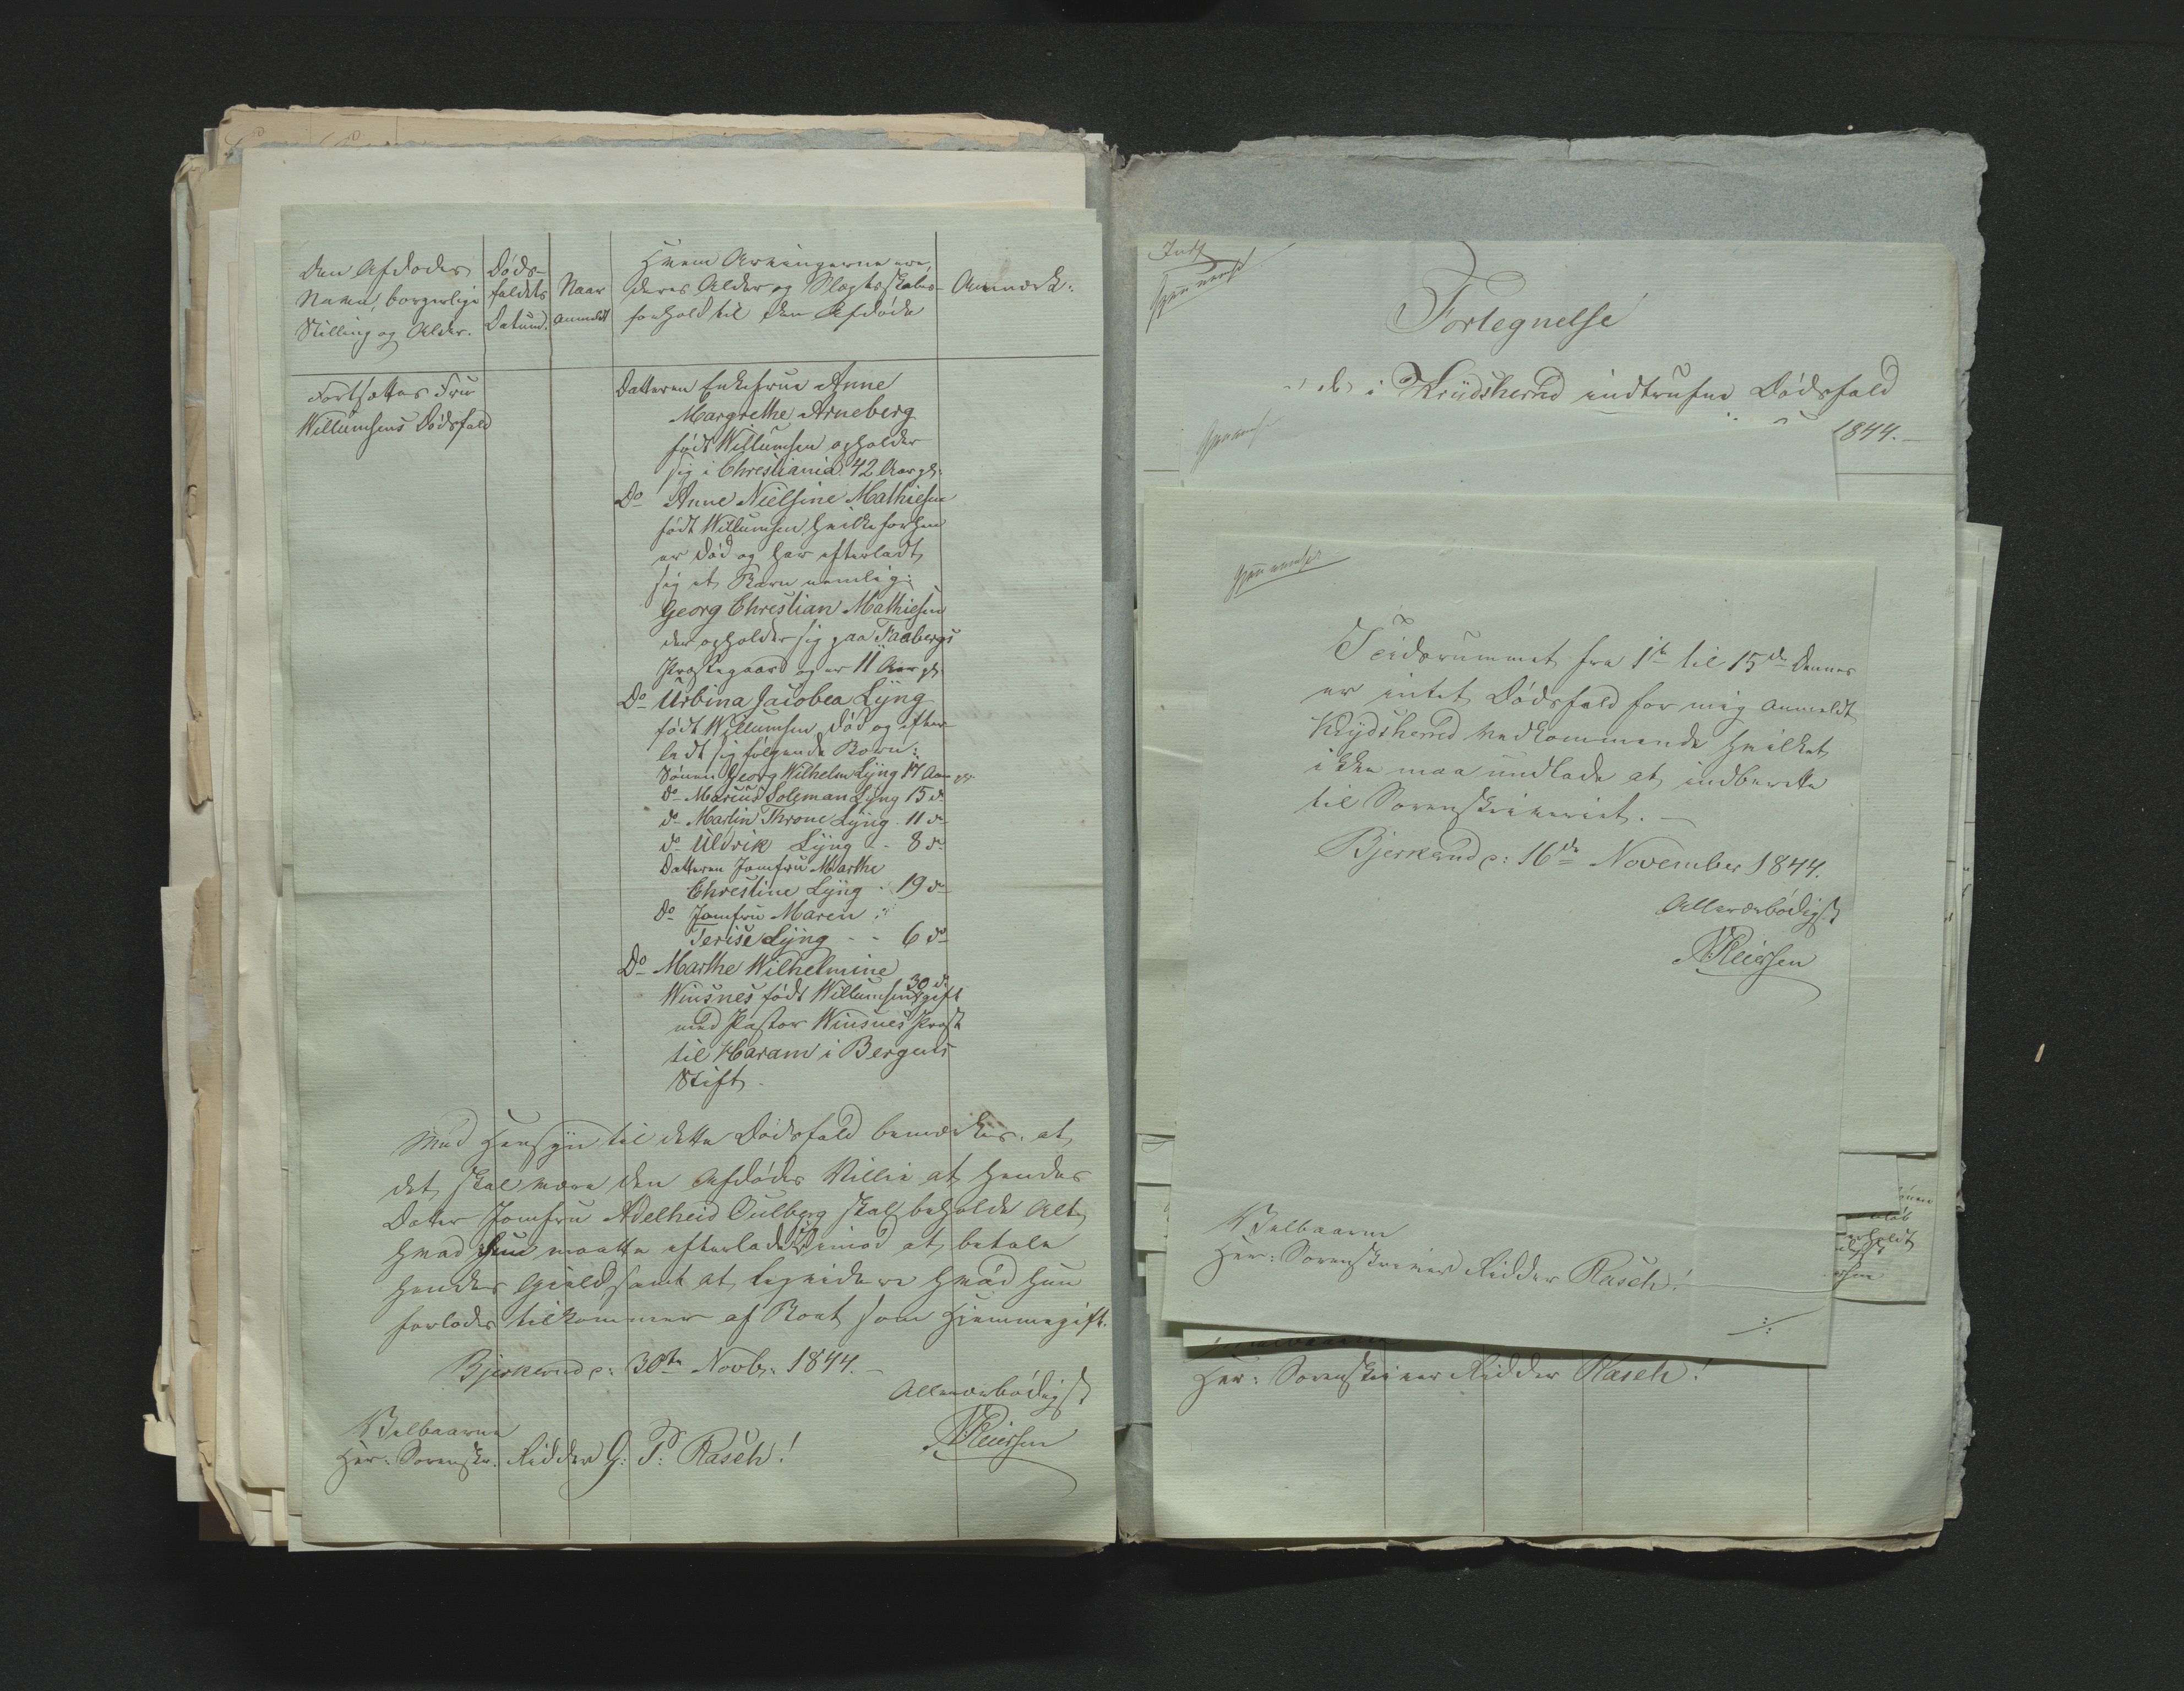 Den Afdødes
Navn, borgerlige
Stilling og Alder.
Døds-
faldets
Datum.
Naar
anmeldt
Hvem Arvingerne ere,
deres Alder og Slægtsskabs-
forhold til den Afdøde
Anmærk:
Fortsættes Fru
Willumsens Dødsfald
Datteren Enkefrue Anne
Margrethe Arneberg
født Willumsen opholder
sig i Christiania 42 Aar gl:
Do Anne Nielsine Mathiesen
født Willumsen hvilke forhen
er død og har efterladt
sig et Barn nemlig:
Georg Christian Mathiesen
der opholder sig paa Faabergs
Præstegaard og er 11 Aar gl.
Do Urbina Jacobea Lÿng
født Willumsen død og efter-
ladt sig følgende Børn:
Sønnen Georg Wilhelm Lÿng 17 Aar gl:
do Marius Soleman Lÿng 15 do
do Martin Throne Lÿng - 11 do
do Uldrik Lÿng - - 8 do
Datteren Jomfru Marthe
Christine Lÿng - 19 do
Do Jomfru Maren
Terise Lÿng - - 6 do
Do Marthe Wilhelmine
30 do
Winsnes født Willumsen gift
med Pastor Winsnes Præst
til Haram i Bergens
Stift.
Med Hensÿn til dette Dødsfald bemærkes, at
det skal være den Afdødes Villie at hendes
Datter Jomfru Adelheid Culberg skal beholde Alt
hvad hun maatte efterlade sig imod at betale
hendes Gield samt at hvad hun
tilkommer af Boet som Hjemmegift.
Bjerkerud d: 30te Novbr: 1844.
Allerærbødigst
N Reiersen
Velbaarne
Herr: Sorenskr. Ridder G: P: Rasch!
Fortegnelse
i Krÿdsherred indtrufne Dødsfald
1844.
Tidsrummet fra 1te til 15de dennes
er intet Dødsfald for mig anmeldt
Krÿdsherred vedkommende hvilket
ikke maa undlade at indberette
til Sorenskriveriet.
Bjerkerud d: 16de November 1844.
Allerærbødigst
N Reiersen
Velbaarne
Herr: Sorenskriver Ridder Rasch!
Herr: Sorenskriver Ridder Rasch!